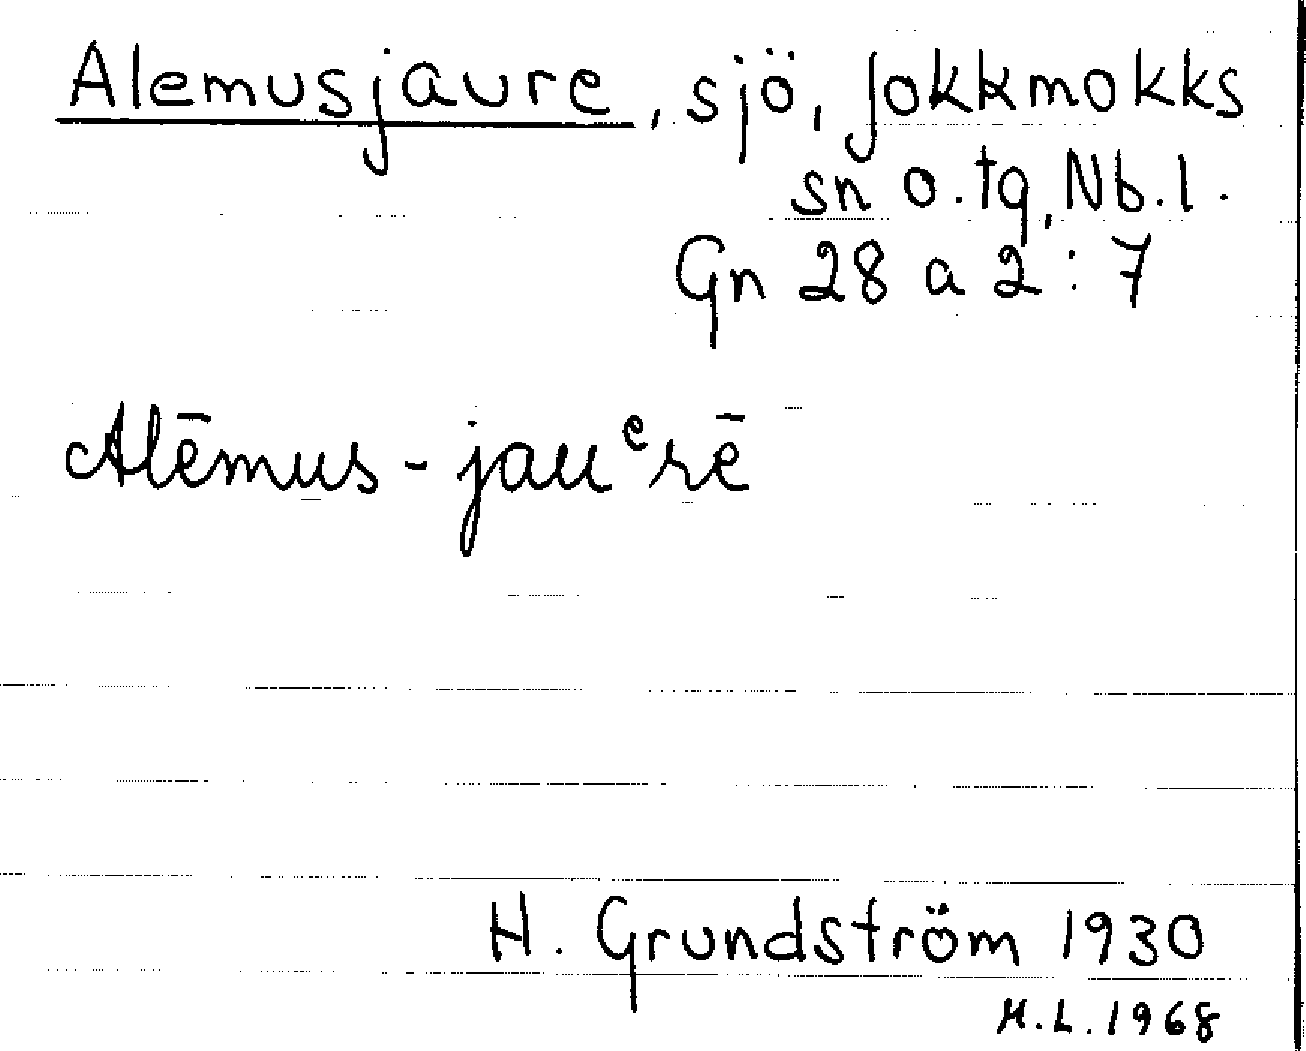 Alemusjaure, sjö, Jokkmokks
sn o. tg, Nb.l.
Gn 28 a 2:7
Alēmus-jauᵉrē
H. Grundström 1930
H.L. 1968